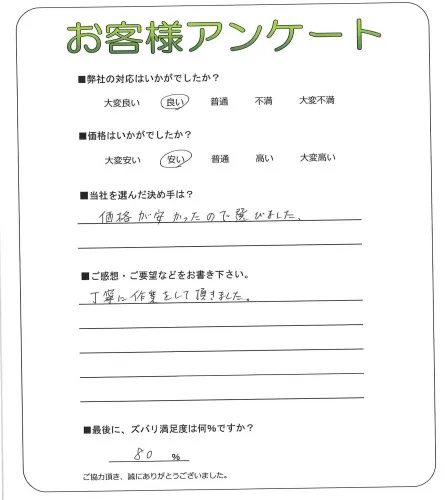 お客様アンケート
■弊社の対応はいかがでしたか？
大変良い 良い 普通 不満 大変不満
■価格はいかがでしたか？
大変安い 安い 普通 高い 大変高い
■当社を選んだ決め手は？
価格が安かったので選びました、
■ご感想・ご要望などをお書き下さい。
丁寧に作業をして頂きました。
■最後に、ズバリ満足度は何%ですか？
80 %
ご協力頂き、誠にありがとうございました。